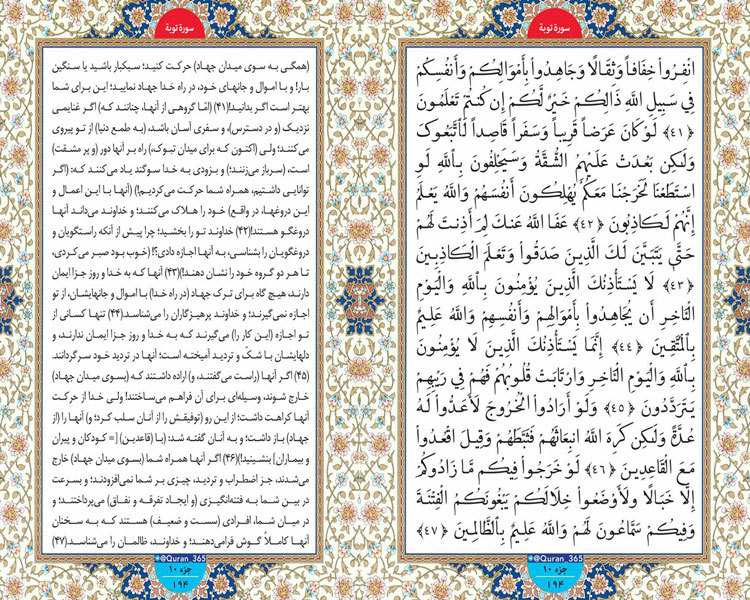 سورة توبة
انْفِرُوا خِفَافاً وَثِقَالًا وَجَاهِدُوا بِأَمْوَالِكُمْ وَأَنفُسِكُمْ
فِي سَبِيلِ اللَّهِ ذَٰلِكُمْ خَيْرٌ لَّكُمْ إِن كُنتُمْ تَعْلَمُونَ
﴿٤١﴾ لَوْ كَانَ عَرَضاً قَرِيباً وَسَفَراً قَاصِداً لَّاتَّبَعُوكَ
وَلَٰكِن بَعُدَتْ عَلَيْهِمُ الشُّقَّةُ وَسَيَحْلِفُونَ بِاللَّهِ لَوِ
اسْتَطَعْنَا لَخَرَجْنَا مَعَكُمْ يُهْلِكُونَ أَنفُسَهُمْ وَاللَّهُ يَعْلَمُ
إِنَّهُمْ لَكَاذِبُونَ ﴿٤٢﴾ عَفَا اللَّهُ عَنكَ لِمَ أَذِنتَ لَهُمْ
حَتَّىٰ يَتَبَيَّنَ لَكَ الَّذِينَ صَدَقُوا وَتَعْلَمَ الْكَاذِبِينَ
﴿٤٣﴾ لَا يَسْتَأْذِنُكَ الَّذِينَ يُؤْمِنُونَ بِاللَّهِ وَالْيَوْمِ
الْآخِرِ أَن يُجَاهِدُوا بِأَمْوَالِهِمْ وَأَنفُسِهِمْ وَاللَّهُ عَلِيمٌ
بِالْمُتَّقِينَ ﴿٤٤﴾ إِنَّمَا يَسْتَأْذِنُكَ الَّذِينَ لَا يُؤْمِنُونَ
بِاللَّهِ وَالْيَوْمِ الْآخِرِ وَارْتَابَتْ قُلُوبُهُمْ فَهُمْ فِي رَيْبِهِمْ
يَتَرَدَّدُونَ ﴿٤٥﴾ وَلَوْ أَرَادُوا الْخُرُوجَ لَأَعَدُّوا لَهُ
عُدَّةً وَلَٰكِن كَرِهَ اللَّهُ انبِعَاثَهُمْ فَثَبَّطَهُمْ وَقِيلَ اقْعُدُوا
مَعَ الْقَاعِدِينَ ﴿٤٦﴾ لَوْ خَرَجُوا فِيكُم مَّا زَادُوكُمْ
إِلَّا خَبَالًا وَلَأَوْضَعُوا خِلَالَكُمْ يَبْغُونَكُمُ الْفِتْنَةَ
وَفِيكُمْ سَمَّاعُونَ لَهُمْ وَاللَّهُ عَلِيمٌ بِالظَّالِمِينَ ﴿٤٧﴾
@Quran_365
جزء ١٠
١٩۴
سورة توبة
(همگی به سوی میدان جهاد) حرکت کنید؛ سبکبار باشید یا سنگین
بار! و با اموال و جانهای خود، در راه خدا جهاد نمایید؛ این برای شما
بهتر است اگر بدانید!(۴۱) (امّا گروهی از آنها، چنانند که) اگر غنایمی
نزدیک (و در دسترس)، و سفری آسان باشد، (به طمع دنیا) از تو پیروی
می‌کنند؛ ولی (اکنون که برای میدان تبوک،) راه بر آنها دور (و پر مشقت)
است، (سرباز می‌زنند؛) و بزودی به خدا سوگند یاد می کنند که: (اگر
توانایی داشتیم، همراه شما حرکت می‌کردیم!) (آنها با این اعمال و
این دروغها، در واقع) خود را هلاک می‌کنند؛ و خداوند می‌داند آنها
دروغگو هستند!(۴۲) خداوند تو را بخشید؛ چرا پیش از آنکه راستگویان و
دروغگویان را بشناسی، به آنها اجازه دادی؟! (خوب بود صبر می‌کردی،
تا هر دو گروه خود را نشان دهند!)(۴۳) آنها که به خدا و روز جزا ایمان
دارند، هیچ گاه برای ترک جهاد (در راه خدا) با اموال و جانهایشان، از تو
اجازه نمی‌گیرند؛ و خداوند پرهیزگاران را می‌شناسد.(۴۴) تنها کسانی از
تو اجازه (این کار را) می‌گیرند که به خدا و روز جزا ایمان ندارند، و
دلهایشان با شکّ و تردید آمیخته است؛ آنها در تردید خود سرگردانند.
(۴۵) اگر آنها (راست می‌گفتند، و) اراده داشتند که (بسوی میدان جهاد)
خارج شوند، وسیله‌ای برای آن فراهم می‌ساختند! ولی خدا از حرکت
آنها کراهت داشت؛ از این رو (توفیقش را از آنان سلب کرد؛ و) آنها را (از
جهاد) باز داشت؛ و به آنان گفته شد: (با (قاعدین) [= کودکان و پیران
و بیماران] بنشینید!)(۴۶) اگر آنها همراه شما (بسوی میدان جهاد) خارج
می‌شدند، جز اضطراب و تردید، چیزی بر شما نمی‌افزودند؛ و بسرعت
در بین شما به فتنه‌انگیزی (و ایجاد تفرقه و نفاق) می‌پرداختند؛ و
در میان شما، افرادی (سست و ضعیف) هستند که به سخنان
آنها کاملاً گوش فرامی‌دهند؛ و خداوند، ظالمان را می‌شناسد.(۴۷)
@Quran_365
جزء ١٠
١٩۴